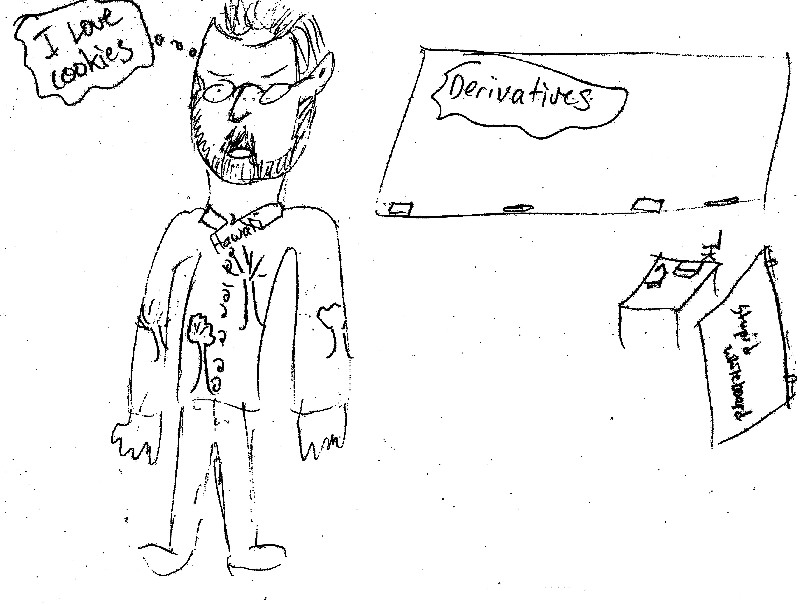 I Love
cookies
Derivatives
Hawaii
stupid
whiteboard